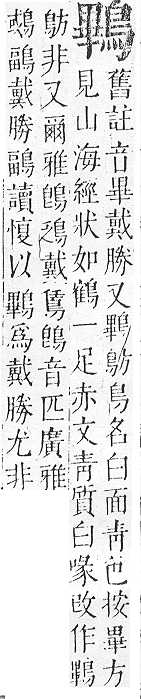 鷝
舊註音畢戴勝又鷝鴋鳥名白面青色按畢方
見山海經狀如鶴一足赤文青質白喙改作鷝
鴋非又爾雅鵖鴔戴鵀鵖音匹廣雅
鶝戴勝鶝讀愎以鷝爲戴勝尤非